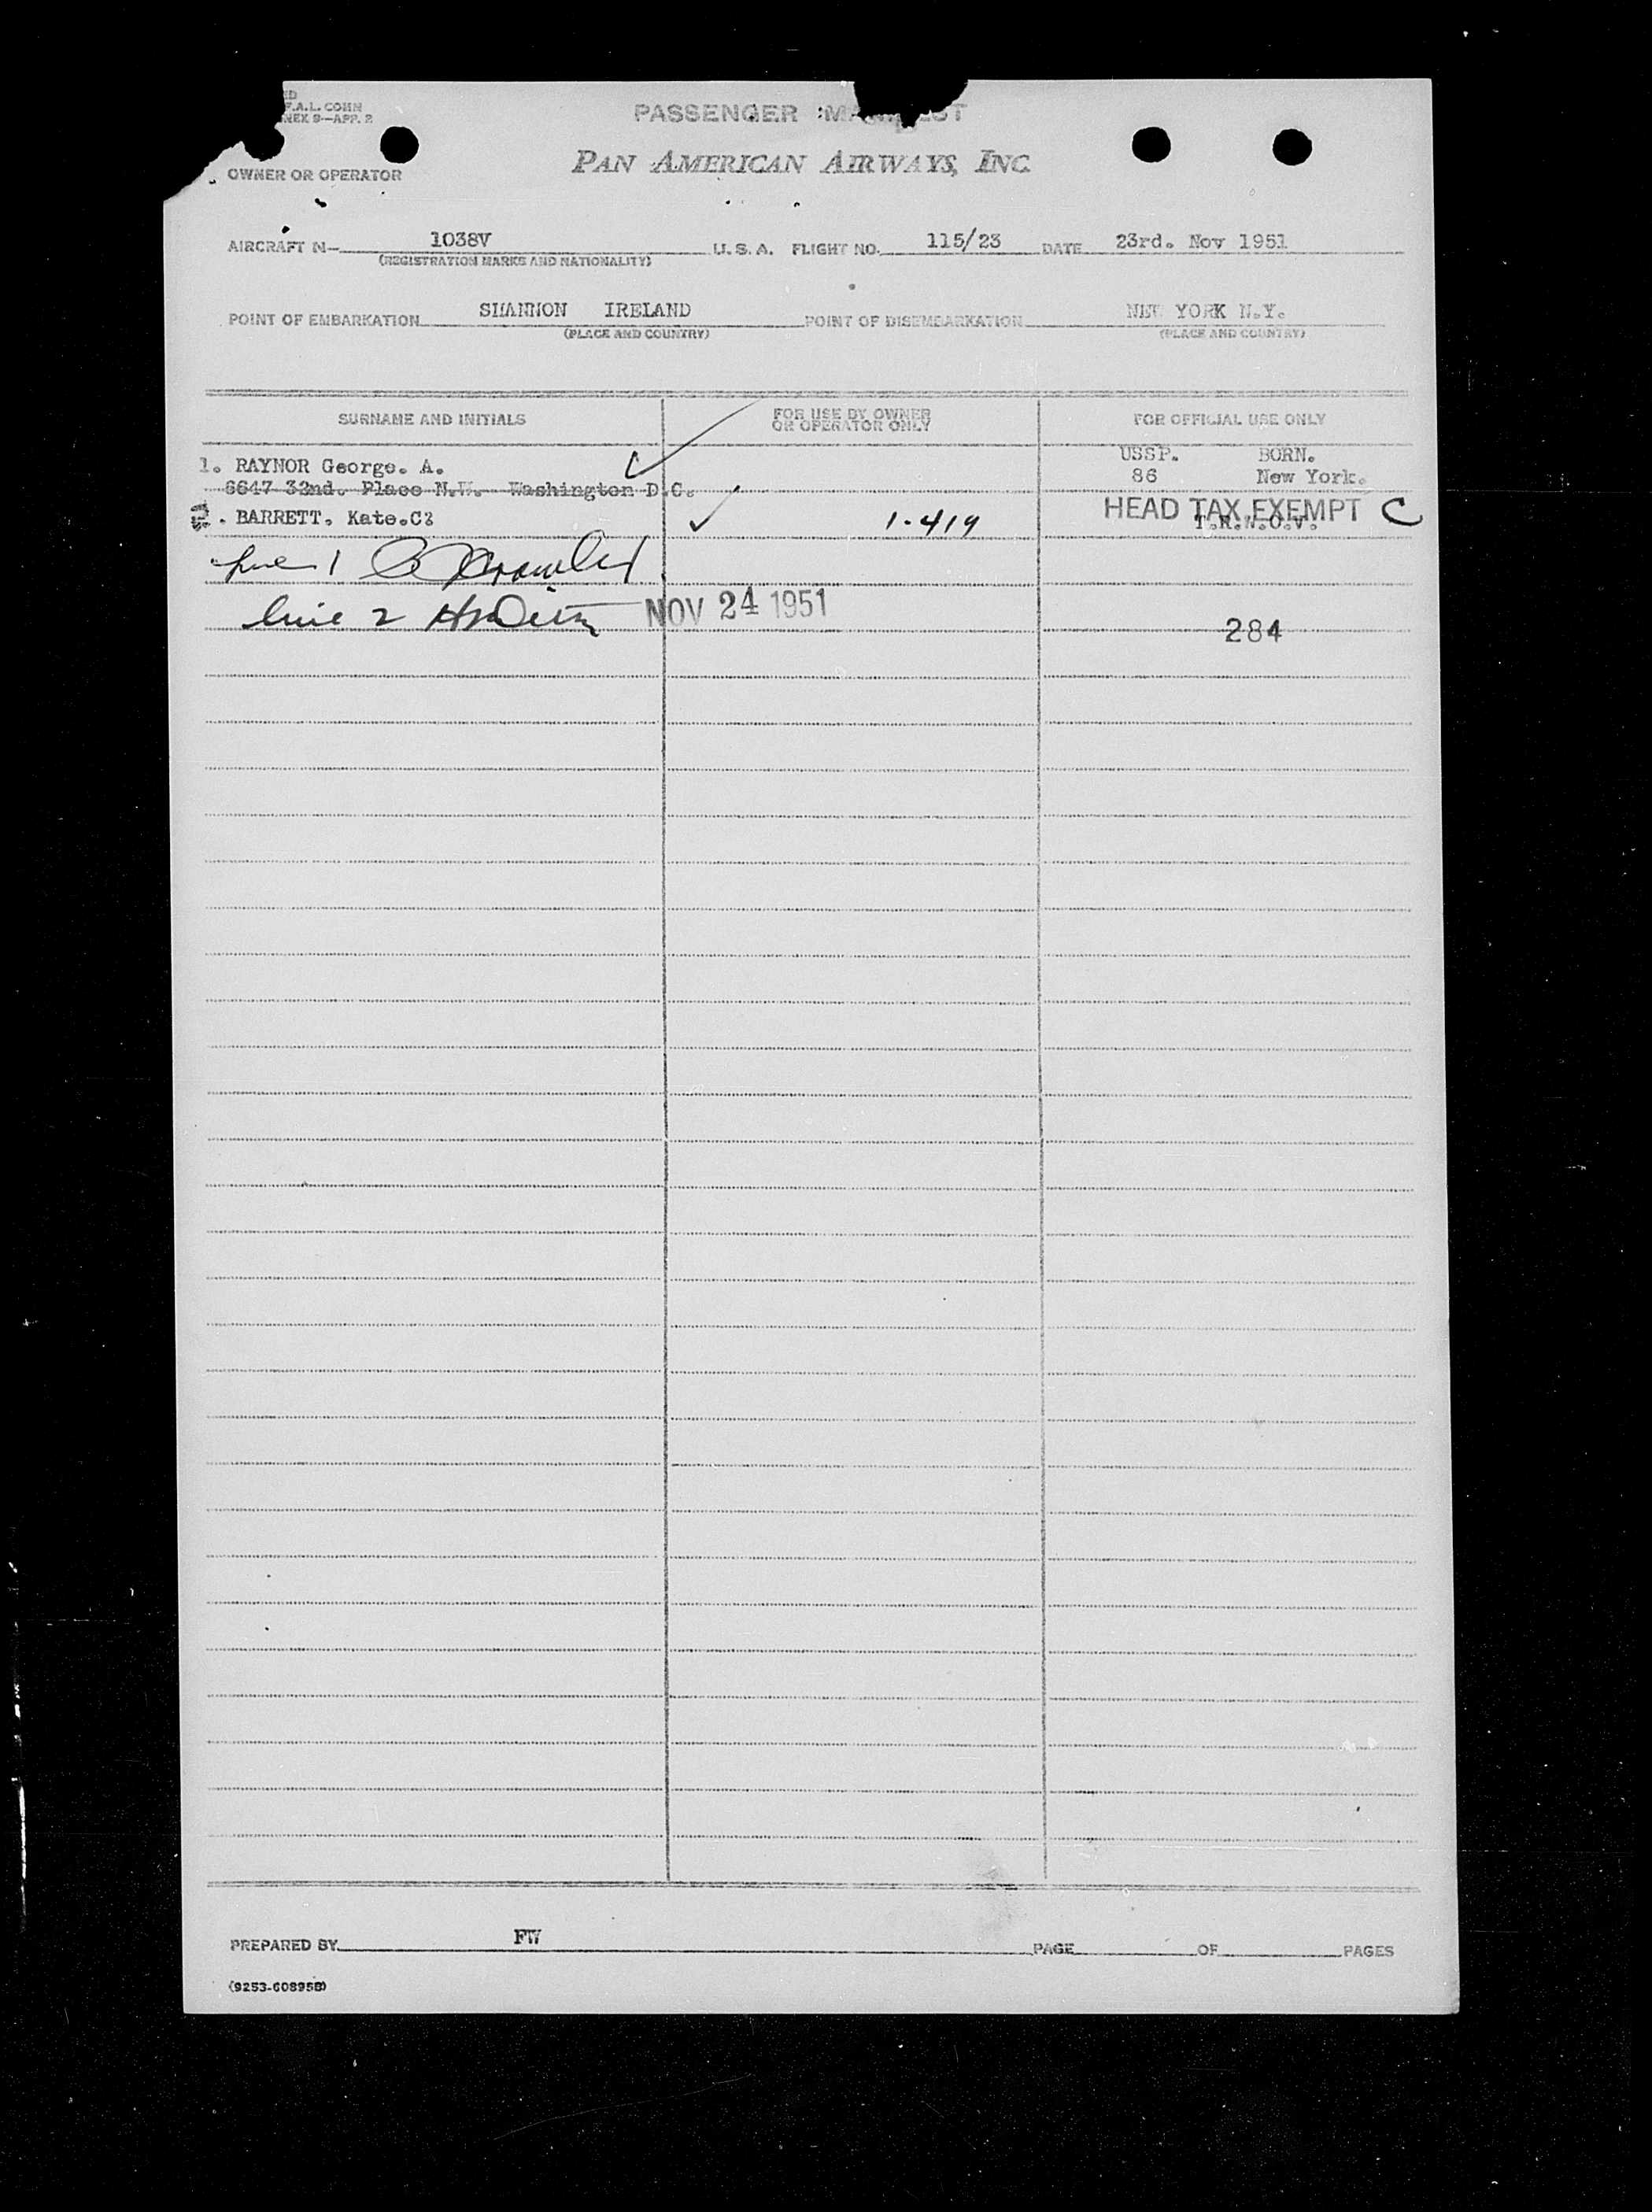 F.A.L. COMM
NEX 9—APP. 2
PASSENGER
PAN AMERICAN AIRWAYS, INC.
OWNER OR OPERATOR
AIRCRAFT N— 1038V U.S.A. FLIGHT NO. 115/23 DATE 23rd. Nov 1951
(REGISTRATION MARKS AND NATIONALITY)
POINT OF EMBARKATION SHANNON IRELAND POINT OF DISEMBARKATION NEW YORK N.Y.
(PLACE AND COUNTRY) (PLACE AND COUNTRY)
SURNAME AND INITIALS FOR USE BY OWNER OR OPERATOR ONLY FOR OFFICIAL USE ONLY
USSP. BORN.
1. RAYNOR George. A. 86 New York.
6647 32nd. Place N.W. Washington D.C.
HEAD TAX EXEMPT C
. BARRETT. Kate.C 1-419 T.R.N.O.V.
line 1
line 2 NOV 24 1951
284
PREPARED BY FW PAGE OF PAGES
(9253-60895B)